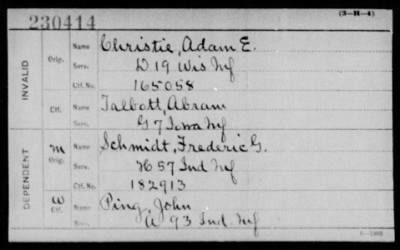 230414
(3-H-4)
INVALID
Orig.
Name Christie, Adam E.
Serv. D 19 Wis Inf
Ctf. No. 165058
Ctf.
Name Talbott, Abram
Serv. G 7 Iowa Inf
DEPENDENT
M
Orig.
Name Schmidt, Frederic G.
Serv. H 57 Ind Inf
Ctf. No. 182913
W
Ctf.
Name Ping, John
Serv. A 93 Ind. Inf